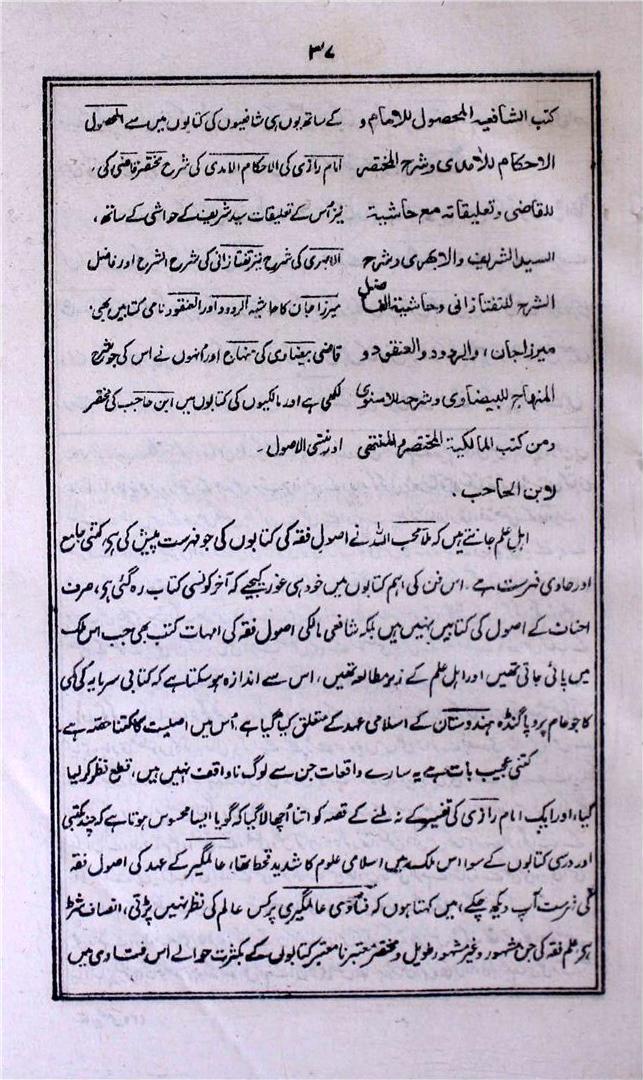 ۳۷
کتب الشافعیہ المحصول للامام و کے ساتھ یوں ہی شافعیوں کی کتابوں میں سے المحصول
الاحکام للآمدی وشرح المختصر امام رازی کی الاحکام الآمدی کی شرح مختصر قاضی کی،
للقاضی وتعلیقاتہ مع حاشیۃ نیز اُس کے تعلیقات سید شریف کے حواشی کے ساتھ،
السید الشریف والابھری وشرح الابہری کی شرح نیز تفتازانی کی شرح الشرح اور فاضل
الشرح للتفتازانی وحاشیۃ الفاضل میرزا جان کا حاشیہ الردود اور العنقود نامی کتابیں بھی
میرزاجان، والردود والعنقود و قاضی بیضاوی کی منہاج اور اُنہوں نے اس کی جو شرح
المنھاج للبیضاوی وشرحہ للاسنوی لکھی ہے اور مالکیوں کی کتابوں میں ابن حاجب کی مختصر
ومن کتب المالکیۃ المختصر والمنتھی اور منتہی الاصول۔
لابن الحاجب۔
اہل علم جانتے ہیں کہ ملا محب اللہ نے اصول فقہ کی کتابوں کی جو فہرست پیش کی ہے کتنی جامع
اور حاوی فہرست ہے۔ اس فن کی اہم کتابوں میں خود ہی غور کیجیے کہ آخر کونسی کتاب رہ گئی ہے، صرف
احناف کے اصول کی کتابیں نہیں ہیں بلکہ شافعی مالکی اصول فقہ کی امہات کتب بھی جب اس ملک
میں پائی جاتی تھیں اور اہل علم کے زیر مطالعہ تھیں، اس سے اندازہ ہو سکتا ہے کہ کتابی سرمایہ کی کمی
کا جو عام پروپاگنڈہ ہندوستان کے اسلامی عہد کے متعلق کیا گیا ہے، اُس میں اصلیت کا کتنا حصہ ہے۔
کتنی عجیب بات ہے یہ سارے واقعات جن سے لوگ ناواقف نہیں ہیں، قطع نظر کر لیا
گیا، اور ایک امام رازی کی تفسیر کے نہ ملنے کے قصہ کو اتنا اُچھالا گیا کہ گویا ایسا محسوس ہوتا ہے کہ چند مکتبی
اور درسی کتابوں کے سوا اس ملک میں اسلامی علوم کا شدید قحط تھا، عالمگیر کے عہد کی اصول فقہ
کی فہرست آپ دیکھ چکے، میں کہتا ہوں کہ فتاوی عالمگیری پر کس عالم کی نظر نہیں پڑتی، انصاف شرط
ہے، علم فقہ کی جن مشہور وغیر مشہور طویل و مختصر معتبر نامعتبر کتابوں کے بکثرت حوالے اس فتاوی میں